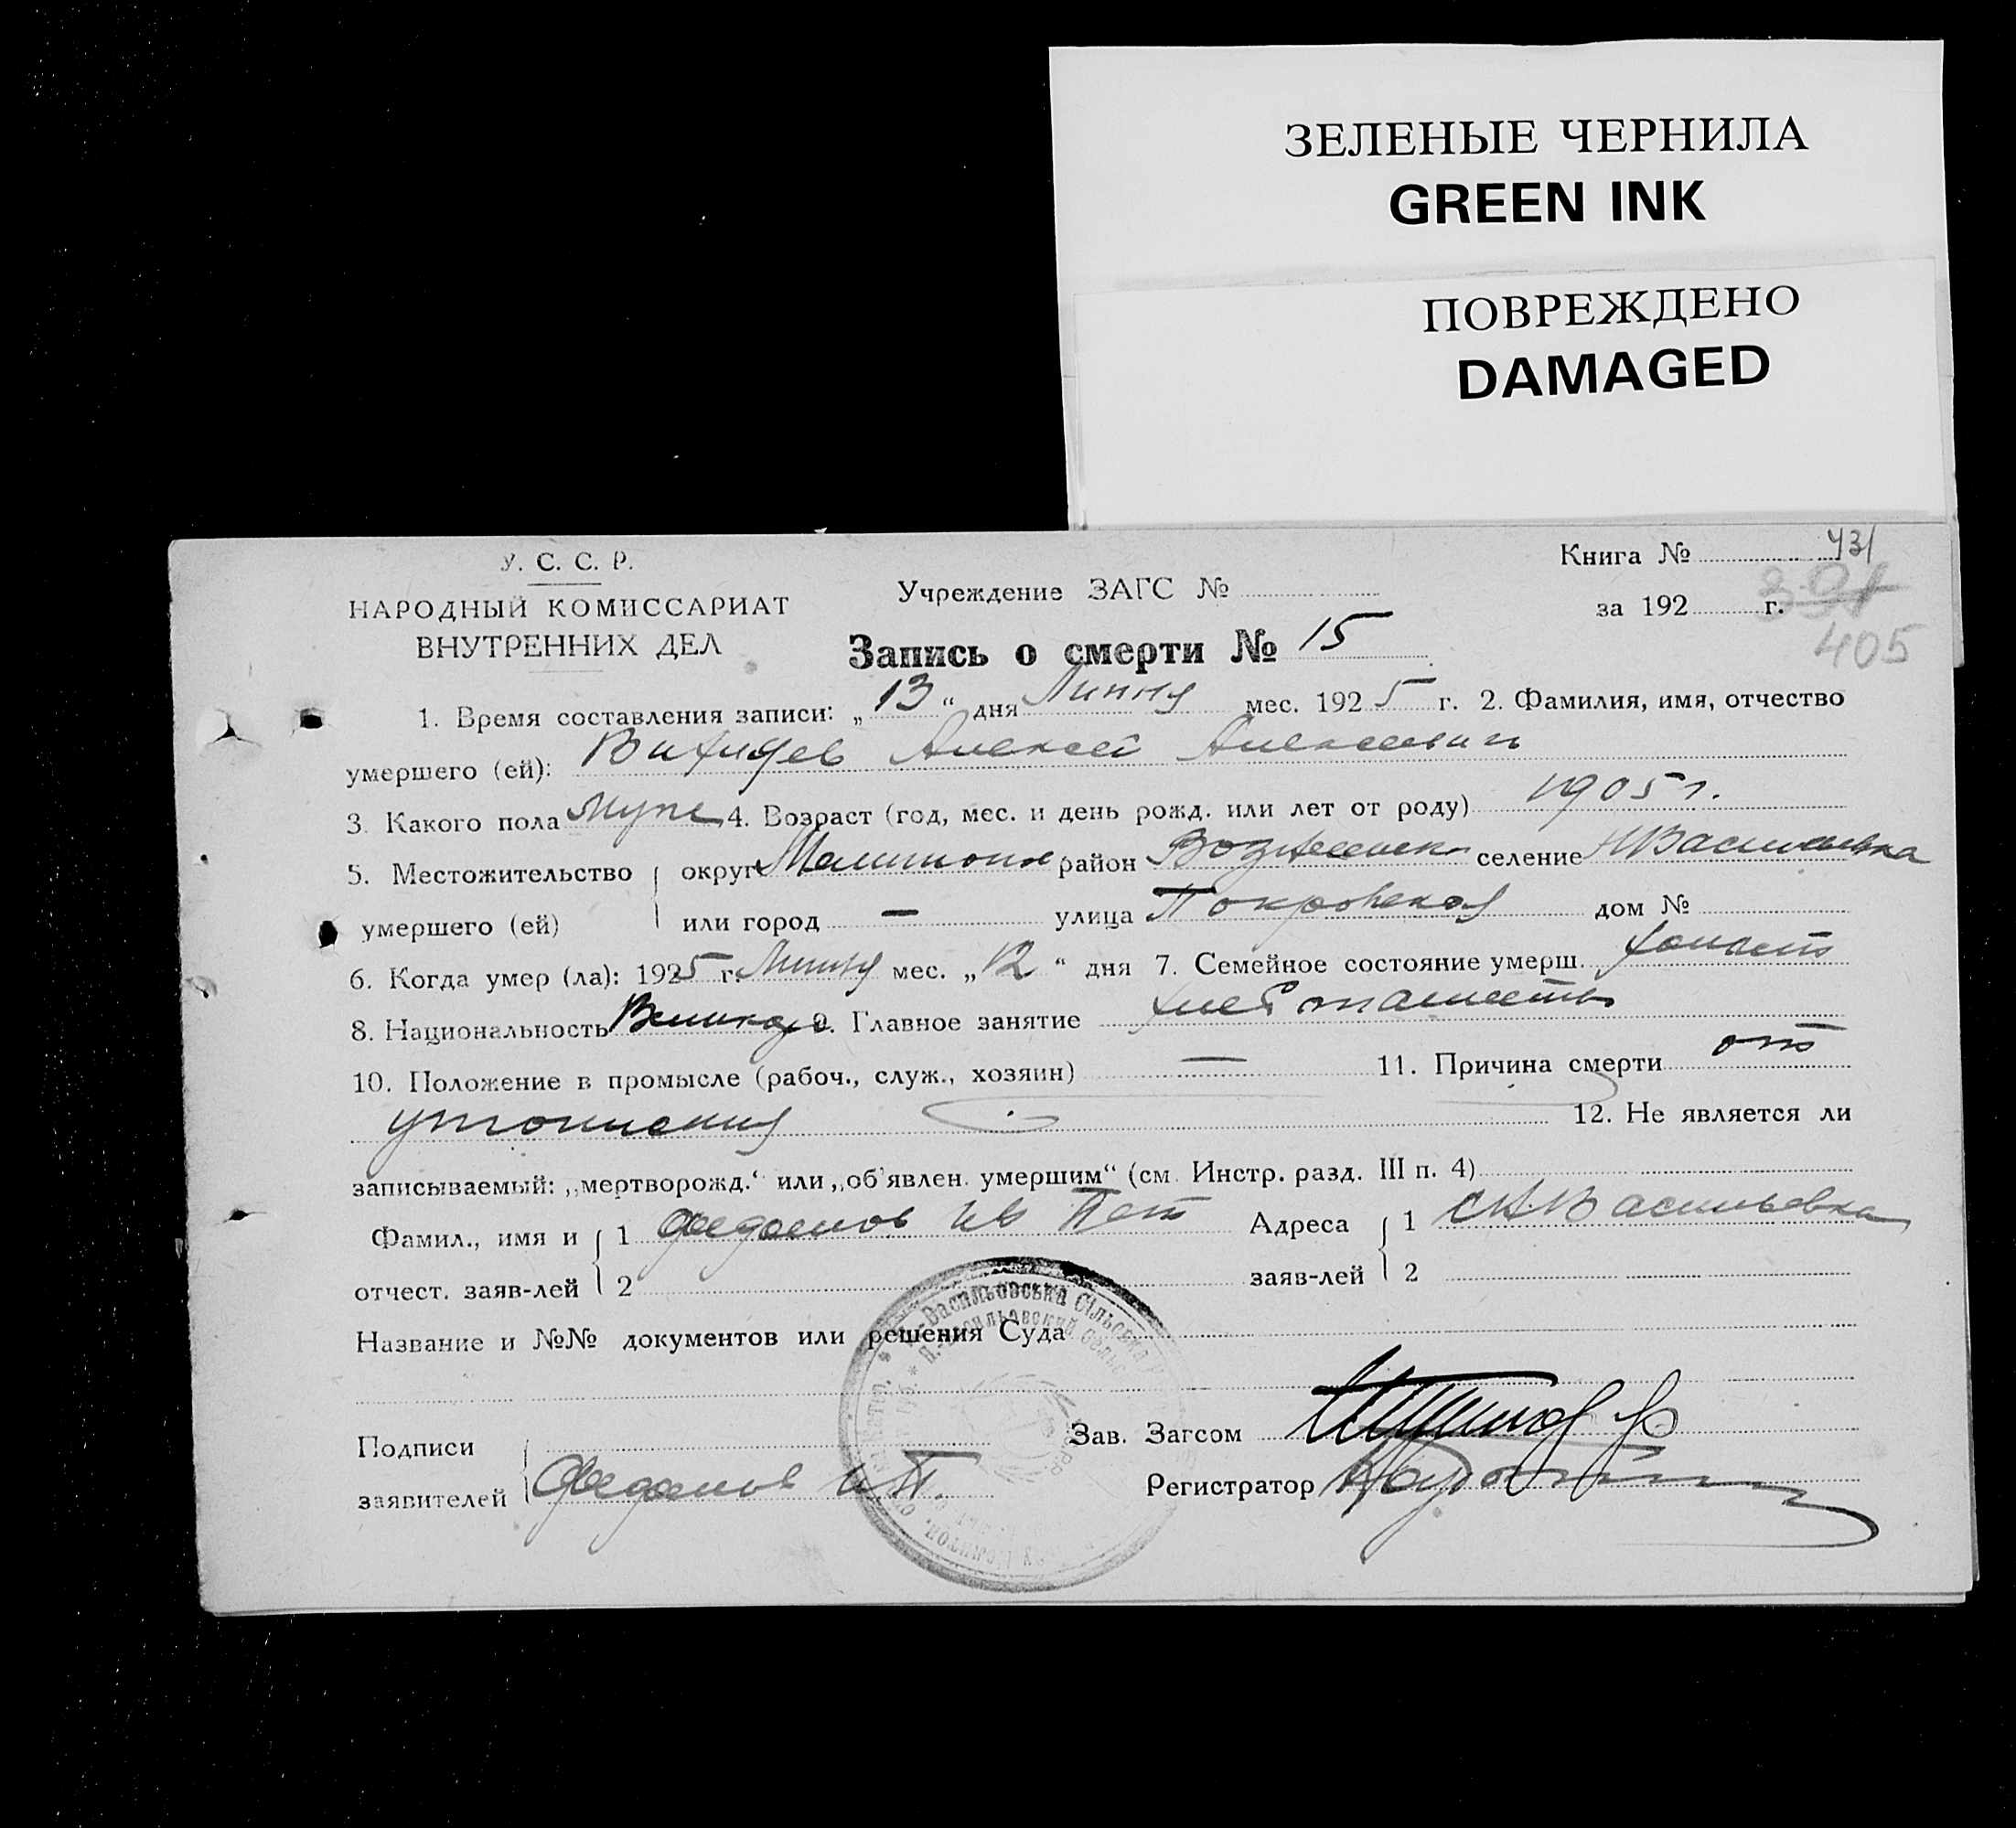 ЗЕЛЕНЫЕ ЧЕРНИЛА
GREEN INK
ПОВРЕЖДЕНО
DAMAGED
У. С. С. Р.
НАРОДНЫЙ КОМИССАРИАТ
ВНУТРЕННИХ ДЕЛ
Учреждение ЗАГС №
Книга № 431
за 192 г. 391
405
Запись о смерти № 15
1. Время составления записи: „13“ дня Липня мес. 1925 г. 2. Фамилия, имя, отчество
умершего (ей): Алексей Алексеевич
3. Какого пола муж 4. Возраст (год, мес. и день рожд. или лет от роду) 1905 г.
5. Местожительство округ район селение Н Васильевка
умершего (ей) или город — улица Покровская дом №
6. Когда умер (ла): 1925 г. Липня мес. „12“ дня 7. Семейное состояние умерш. холост
8. Национальность 9. Главное занятие
10. Положение в промысле (рабоч., служ., хозяин) — 11. Причина смерти от
утопления 12. Не является ли
записываемый: „мертворожд.“ или „об'явлен. умершим“ (см. Инстр. разд. III п. 4)
Фамил., имя и 1 Ив Пет Адреса 1 с Н Васильевка
отчест. заяв-лей 2 заяв-лей 2
Название и №№ документов или решения Суда
Н.-Васильовська Сільська
Н.-Васильевский Сельс
Подписи
заявителей И П.
Зав. Загсом
Регистратор